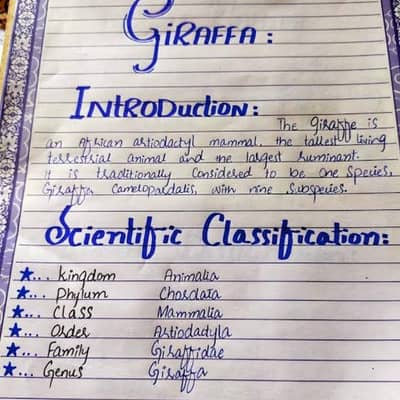 GiRAFFA:
INtRODuction:
The giraffe is
an African artiodactyl mammal, the tallest living
terrestrial animal and the largest ruminant.
It is traditionally considered to be one species,
Giraffa Camelopardalis, with nine subspecies.
Scientific Classification:
★... Kingdom Animalia
★... Phylum Chordata
★... Class Mammalia
★... Order Artiodadyla
★... Family Giraffidae
★... Genus Giraffa